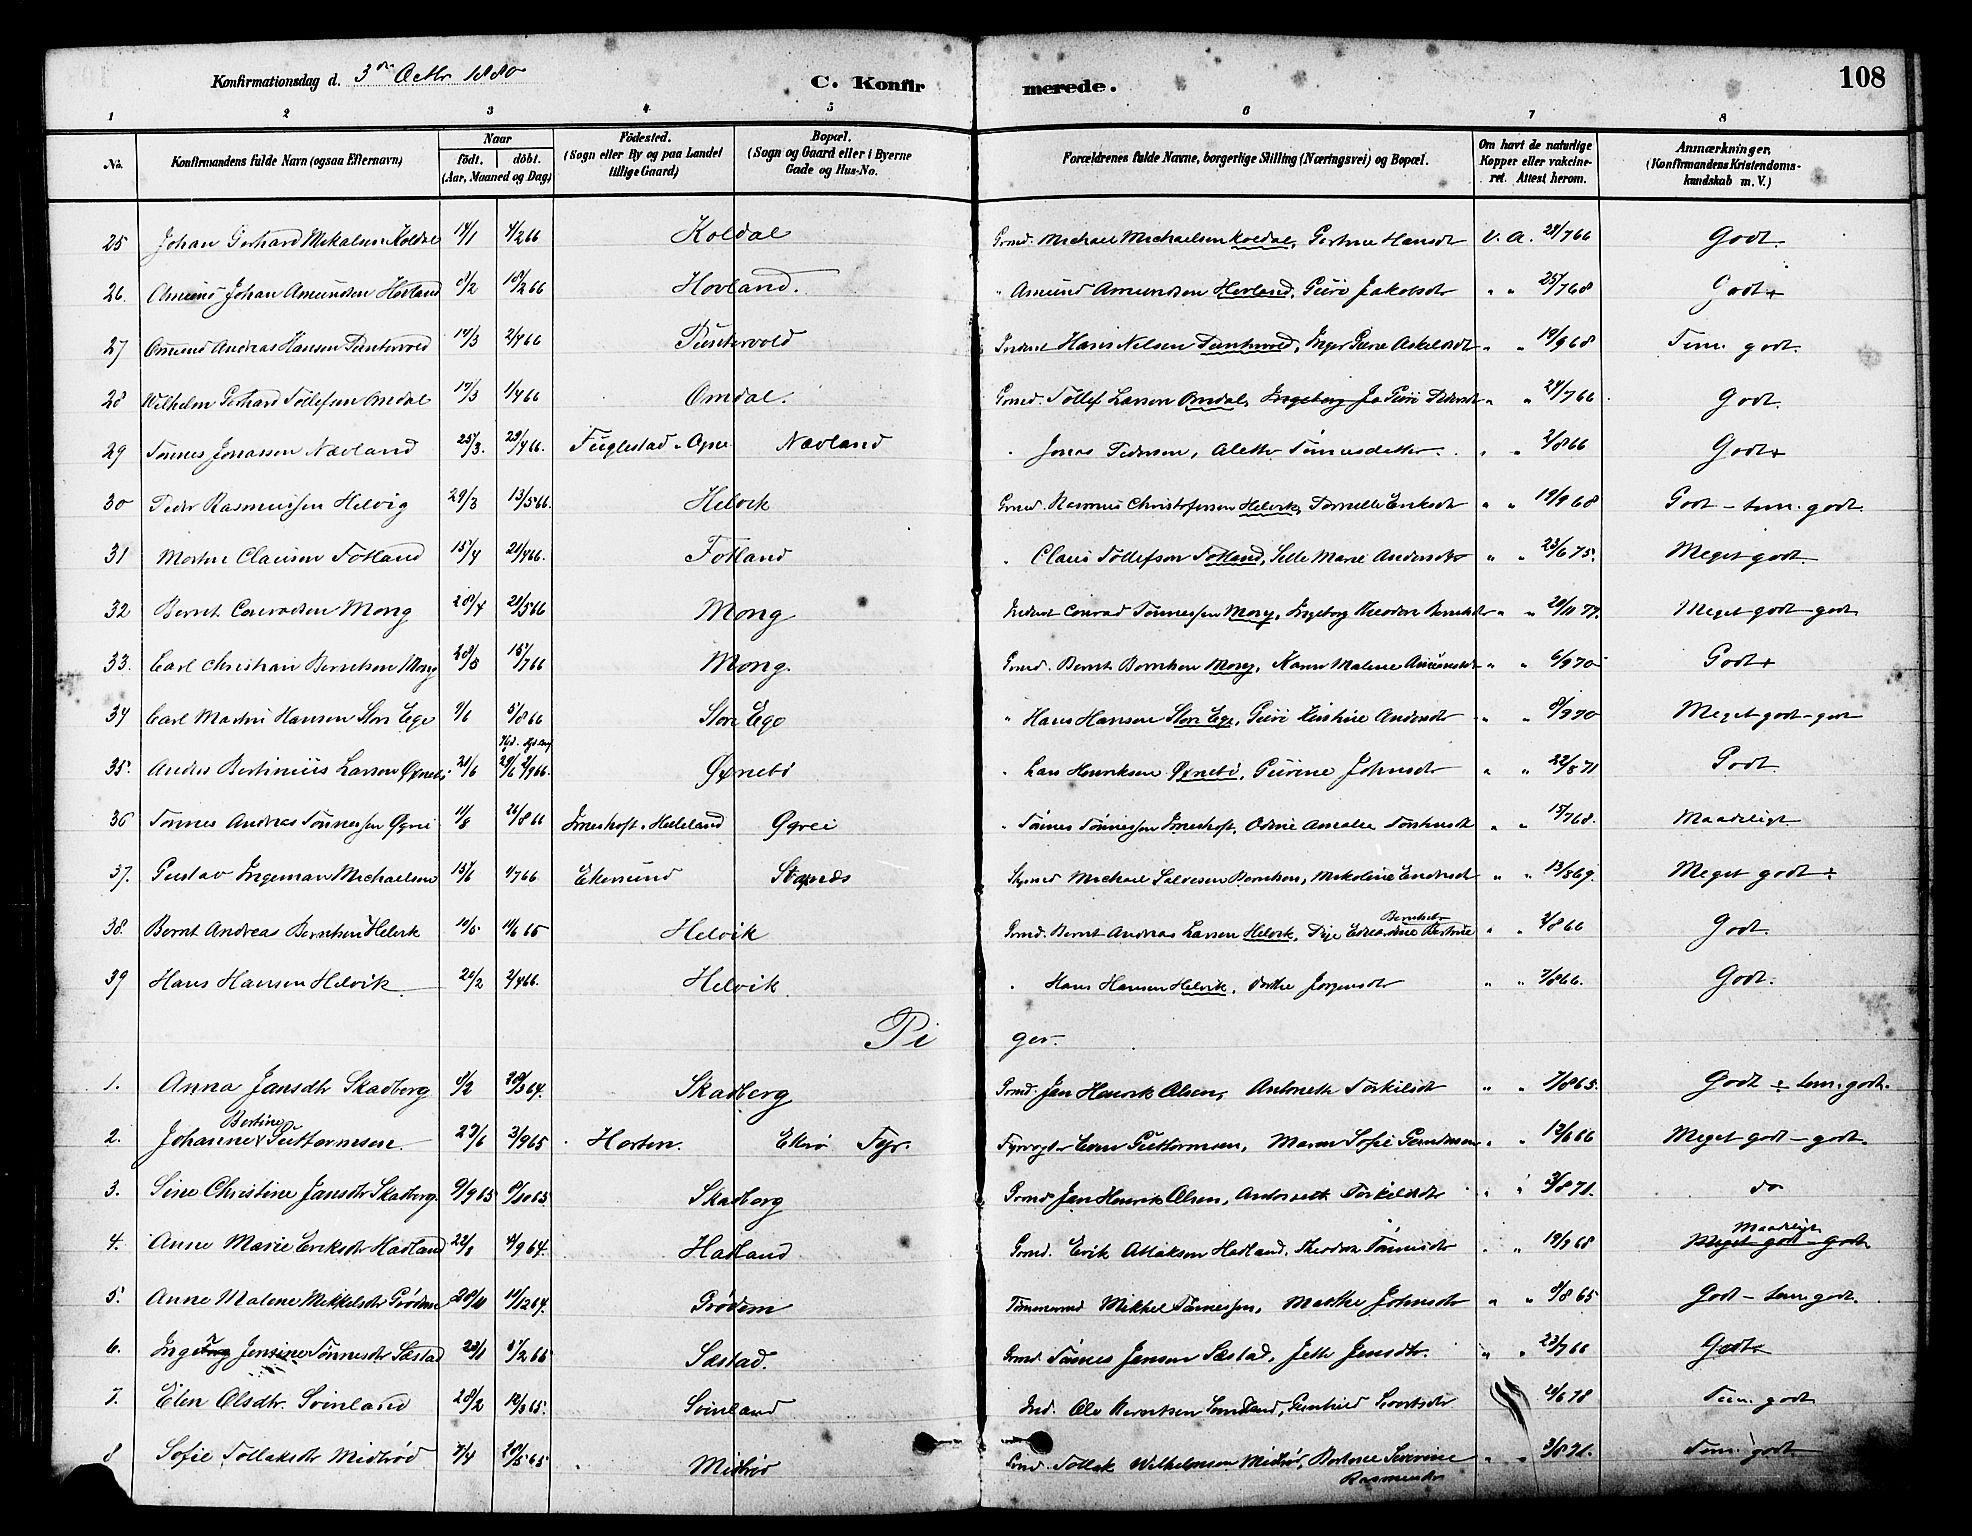 Konfirmationsdag d. 3die Octbr 1880
C. Konfirmerede.
108
1 2 3 4 5 6 7 8
No. Konfirmandens fulde Navn (ogsaa Efternavn) Naar födt. döbt. (Aar, Maaned og Dag) Födested. (Sogn eller By og paa Landet tillige Gaard) Bopæl. (Sogn og Gaard eller i Byerne Gade og Hus-No. Forældrenes fulde Navne, borgerlige Stilling (Næringsvei) og Bopæl. Om havt de naturlige Kopper eller vakcineret. Attest herom. Anmærkninger, (Konfirmandens Kristendomskundskab m. V.)
25 Johan Gerhard Mikalsen Koldal 14/1 4/2 66 Koldal Grmd. Michael Michaelsen Koldal, Gertine Hansdt V. A. 28/7 66 Godt.
26. Amund Johan Amundsen Hovland 8/2 18/2 66 Hovland. " Amund Amundsen Hovland, Guri Jakobsdt " " 25/7 68 Godt+
27 Omund Andreas Hansen Puntervold 14/3 2/4 66 Puntervold Inderst Hans Nilsen Puntervold, Inger Gurine Askildsdt " " 19/9 68 Tem. godt.
28 Wilhelm Gerhard Tollefsen Omdal 17/3 1/4 66 Omdal. Grmd. Tollef Larsen Omdal, Ingeborg Jo Guri Pedersdt " " 24/7 66 Godt.
29 Tønnes Jonassen Nævland 25/3. 29/4 66. Fuglestad i Ogne Nævland " Jonas Pedersen, Alette Tønnesdatter. " " 2/8 66 Godt+
30 Peder Rasmussen Helvig 29/3 13/5 66. Helvik Grmd. Rasmus Christofersen Helvik, Pernille Eriksdt " " 19/9 68 Godt - tem. godt.
31 Morten Clausen Fotland 15/4 21/4 66. Fotland " Claus Tollefsen Fotland, Selle Marie Andersdt " " 23/6 75. Meget godt.
32 Bernt Conradsen Mong 28/4 21/5 66 Mong Inderst Conrad Tønnessen Mong, Ingeborg Theodore Berntsdt " " 29/11 77. Meget godt - godt
33. Carl Christian Berntsen Mong 28/5 15/7 66 Mong. Grmd. Bernt Berntsen Mong, Karen Malene Amundsdt " " 6/9 70 Godt+
34 Carl Martin Hansen Store Ege 9/6 5/8 66 Store Ege " Hans Hansen Store Ege, Guri Kirstine Andersdt " " 8/9 70 Meget godt - godt
35. Andres Bertinius Larsen Øxnebø 21/6 29/6 2/9 66. Øxnebø " Lars Henriksen Øxnebø, Gurine Johnsdt " " 22/8 71 Godt.
36 Tønnes Andreas Tønnessen Øgrei 11/8 26/8 66 i Heleland Øgrei " Tønnes Tønnessen, Amalie " " 15/7 68. Maadeligt.
37. Gustav Ingeman Michaelsen 15/6 1/7 66 Ekersund Stapnæs Michael Salvesen Berntsen, Mikoline Endresdt " " 13/8 69. Meget godt ÷
38. Bernt Andreas Berntsen Helvik 10/5 11/6 65 Helvik Grmd. Bernt Andreas Larsen Helvik, Berntsdtr " " 2/8 66 Godt.
39 Hans Hansen Helvik 20/2 2/4 66. Helvik " Hans Hansen Helvik, Dorthe Jørgensdt " " 7/8 66. Godt.
Piger.
1. Anna Jansdtr Skadberg 8/2 28/3 64. Skadberg Grmd. Jan Henrik Olsen, Antonette Torkilsdt " " 7/8 65. Godt ÷ tem. godt.
2. Johanne Bertine Guttormsen. 27/6 3/9 65 Horten. Ekerø Fyr. Fyrvogter Even Guttormsen, Maren Sofie Gundersen " " 12/6 66 Meget godt - godt.
3. Sine Christine Jansdtr Skadberg. 9/9 65 8/10 65. Skadberg Grmd. Jan Henrik Olsen, Antonette Torkildsdt " " 3/8 71. do
4. Anne Marie Eriksdtr Hadland 22/8 4/9 64. Hadland Grmd. Erik Atlaksen Hadland, Theodora Tønnesdt " " 19/9 68 Maadeligt Meget godt - godt
5. Anne Malene Mikkelsdtr Grødem 28/11 11/12 64. Grødem Tømmermd Mikkel Tønnessen, Marthe Johnsdt " " 9/8 65 Godt - tem. godt.
6. Inge Jensine Tønnesdtr Sæstad 23/1 5/2 65 Sæstad. Grmd. Tønnes Jensen Sæstad, Jette Jensdtr. " " 23/7 66 Godt+
7. Elen Olsdtr. Svinland 28/2 12/3 65. Svinland Ind. Ole Berentsen Svinland, Gunhild Sivertsdtr 20/6 78 Tem. godt
8 Sofie Tollaksdtr Midbrød 7/4 20/5 65 Midbrød Grmd. Tollak Wilhelmsen Midbrød, Bertine Severine Rasmusdtr " " 3/8 71. Tem. godt.